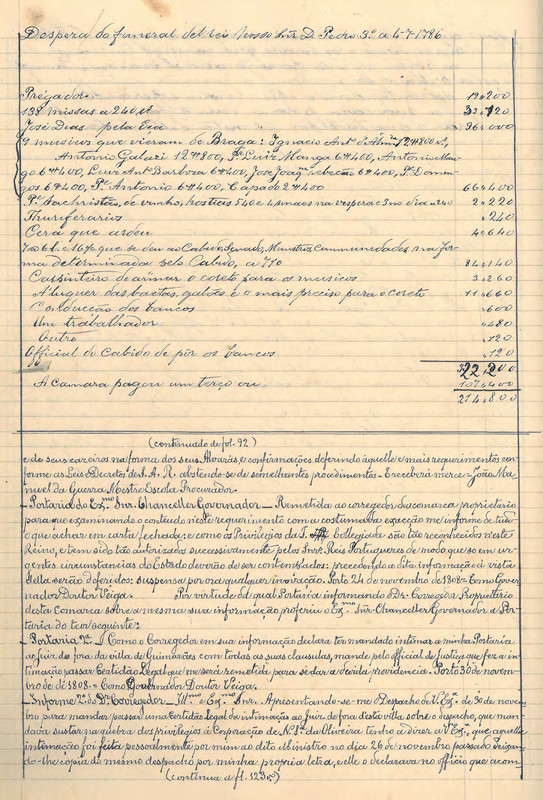 Despeza do funeral del Rei Nosso Snr. D. Pedro 3º a 4 1786
Prégador 12,200
138 missas a 240 rs 33,120
José Dias pela Eça 96,000
9 musicos que vieram de Braga: Ignacio Antº 12#800 rs,
Antonio Galari 12#800, Pe Luiz Manga 6#400, Antonio Man-
go 6#400, Luiz Antº Barboza 6#400, José Joaqm rebecão 6#400, Pe Domin-
gos 6#400, Pe Antonio 6#400, Capado 2#400 66,400
Pe Sachristão, de vinho, hostias 540 e 4 mãos na vespera e 3 no dia a 240 2,220
Thuriferarios ,240
Cera que ardeu 4,640
que se deu ao Cabido, Senado, Ministros, communidades na for-
ma determinada pelo Cabido, a 770 84,140
Carpinteiro de armar o coreto para os musicos 3,260
Aluguer das baetas, galões e o mais preciso para o coreto 11,660
Conducção dos bancos ,600
Um trabalhador ,680
Outro ,120
Official do Cabido de pôr os bancos ,120
322,200
A Camara pagou um terço ou 107,400
214,800
(continuado de fol. 92)
e de seus caseiros na forma dos seus Alvarás e confirmações deferindo àquelle e mais requerimentos con-
forme as Leis e Decretos de S. A. R. abstendo-se de semelhantes procedimentos. E receberá mercê = João Ma-
nuel da Guerra Mestre Escola Procurador.
_ Portaria do Exmo Snr. Chanceller Governador _ Remettida ao corregedor da comarca proprietario
para que examinando o conteudo n'este requerimento com a costumada exacção me informe de tudo
o que achar em carta fechada; e como os Privilegios da I. Collegiada são tão reconhecidos neste
Reino, e tem sido tão autorizados successivamente pelos Snrs. Reis Portuguezes de modo que só em ur-
gentes circunstancias do Estado deverão de ser contemplados: precedendo a dita informação á vista
della serão deferidos: suspensa por ora qualquer inovação. Porto 24 de novembro de 1808 = Como Gover-
nador Doutor Veiga. Por virtude da qual Portaria informando o Dr. Corregedor Proprietario
desta Comarca sobre a mesma sua informação proferiu o Exmo Snr. Chanceller Governador a Por-
taria do teor seguinte:
_ Portaria 2ª _ Como o Corregedor em sua informação declara ter mandado intimar a minha Portaria
ao Juiz de fora da villa de Guimarães com todas as suas clausulas, mande pelo official de Justiça que fez a in-
timação passar Certidão Legal que me será remettida para se dar a devida providencia. Porto 30 de novem-
bro de de 1808. = Como Governador Doutor Veiga.
_ Informe 2º do Dr. Corregedor _ Illmo e Exmo Snr. Apresentando-se-me o Despacho de V. Exª. de 30 de novem-
bro para mandar passar uma Certidão Legal da intimação ao Juiz de fora desta villa sobre o despacho, que man-
dava sustar na quebra dos privilegios á Corporação de N. Sª da Oliveira tenho a dizer a V. Exª, que aquella
intimação foi feita pessoalmente por mim ao dito Ministro no dia 26 de novembro passado deixan-
do-lhe copia do mesmo despacho por minha propria letra, e elle o declarava no officio que acom-
(continua a fl. 123 v)